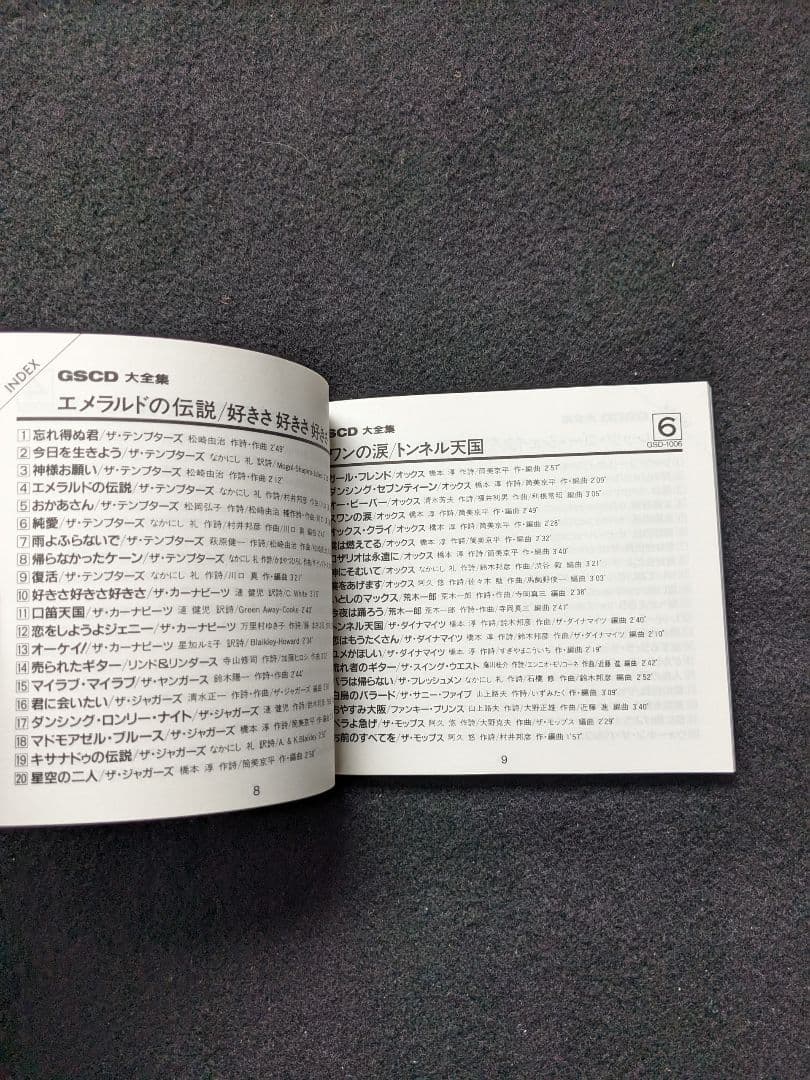 INDEX
GSCD 大全集
エメラルドの伝説/好きさ好きさ好きさ
1 忘れ得ぬ君/ザ・テンプターズ 松崎由治 作詩・作曲 2'49"
2 今日を生きよう/ザ・テンプターズ なかにし 礼 訳詩/Mogol-Shapiro-Julien
3 神様お願い/ザ・テンプターズ 松崎由治 作詩・作曲 2'12"
4 エメラルドの伝説/ザ・テンプターズ なかにし 礼 作詩/村井邦彦 作曲
5 おかあさん/ザ・テンプターズ 松岡弘子 作詩/松崎由治 補作詩・作曲
6 純愛/ザ・テンプターズ なかにし 礼 作詩/村井邦彦 作曲/川口 真
7 雨よふらないで/ザ・テンプターズ 萩原健一 作詩/松崎由治 作曲
8 帰らなかったケーン/ザ・テンプターズ なかにし 礼 作詩
9 復活/ザ・テンプターズ なかにし 礼 作詩/川口 真 作・編曲 3'21"
10 好きさ好きさ好きさ/ザ・カーナビーツ 漣 健児 訳詩/C. White 3'16"
11 口笛天国/ザ・カーナビーツ 漣 健児 訳詩/Green Away-Cooke 2'43"
12 恋をしようよジェニー/ザ・カーナビーツ 万里村ゆき子 作詩
13 オーケイ!/ザ・カーナビーツ 星加ルミ子 訳詩/Blaikley-Howard 2'34"
14 売られたギター/リンド&リンダース 寺山修司 作詩/加藤ヒロシ 作曲
15 マイラブ・マイラブ/ザ・ヤンガース 鈴木陽一 作詩・作曲 2'44"
16 君に会いたい/ザ・ジャガーズ 清水正一 作詩・作曲/ザ・ジャガーズ 編曲
17 ダンシング・ロンリー・ナイト/ザ・ジャガーズ 漣 健児 作詩/鈴木邦彦
18 マドモアゼル・ブルース/ザ・ジャガーズ 橋本 淳 作詩/筒美京平 作・編曲
19 キサナドゥの伝説/ザ・ジャガーズ なかにし 礼 訳詩/A. & K.Blaikley 2'58"
20 星空の二人/ザ・ジャガーズ 橋本 淳 作詩/筒美京平 作・編曲 2'50"
8
SCD 大全集
6
GSD-1006
ワンの涙/トンネル天国
ール・フレンド/オックス 橋本 淳 作詩/筒美京平 作・編曲 2'57"
ンシング・セブンティーン/オックス 橋本 淳 作詩/筒美京平 作・編曲 2'09"
ー・ビーバー/オックス 清水芳夫 作詩/福井利男 作曲/利根常昭 編曲 3'05"
スワンの涙/オックス 橋本 淳 作詩/筒美京平 作・編曲 2'49"
ックス・クライ/オックス 橋本 淳 作詩/筒美京平 作・編曲 2'28"
は燃えてる/オックス 橋本 淳 作詩/筒美京平 作・編曲 2'39"
ロザリオは永遠に/オックス 橋本 淳 作詩/筒美京平 作・編曲 3'40"
にそむいて/オックス なかにし 礼 作詩/鈴木邦彦 作曲/渋谷 毅 編曲 3'21"
をあげます/オックス 阿久 悠 作詩/佐々木 勉 作曲/馬飼野俊一 編曲 3'03"
いとしのマックス/荒木一郎 荒木一郎 作詩・作曲/寺岡真三 編曲 2'38"
今夜は踊ろう/荒木一郎 荒木一郎 作詩・作曲/寺岡真三 編曲 2'41"
トンネル天国/ザ・ダイナマイツ 橋本 淳 作詩/鈴木邦彦 作曲/ザ・ダイナマイツ 編曲 2'40"
恋はもうたくさん/ザ・ダイナマイツ 橋本 淳 作詩/鈴木邦彦 作曲/ザ・ダイナマイツ 編曲 2'10"
ユメがほしい/ザ・ダイナマイツ 橋本 淳 作詩/すぎやまこういち 作・編曲 2'19"
れ者のギター/ザ・スイング・ウエスト 滝川杜介 作詩/エンニオ・モリコーネ 作曲/近藤 進 編曲 2'42"
バラは帰らない/ザ・フレッシュメン なかにし 礼 作詩/石橋 修 作曲/鈴木邦彦 編曲 2'52"
白鳥のバラード/ザ・サニー・ファイブ 山上路夫 作詩/いずみたく 作・編曲 3'09"
おやすみ大阪/ファンキー・プリンス 山上路夫 作詩/大野正雄 作曲/近藤 進 編曲 3'40"
ベラよ急げ/ザ・モップス 阿久 悠 作詩/大野克夫 作曲/ザ・モップス 編曲 2'29"
お前のすべてを/ザ・モップス 阿久 悠 作詩/村井邦彦 作・編曲 1'57"
9